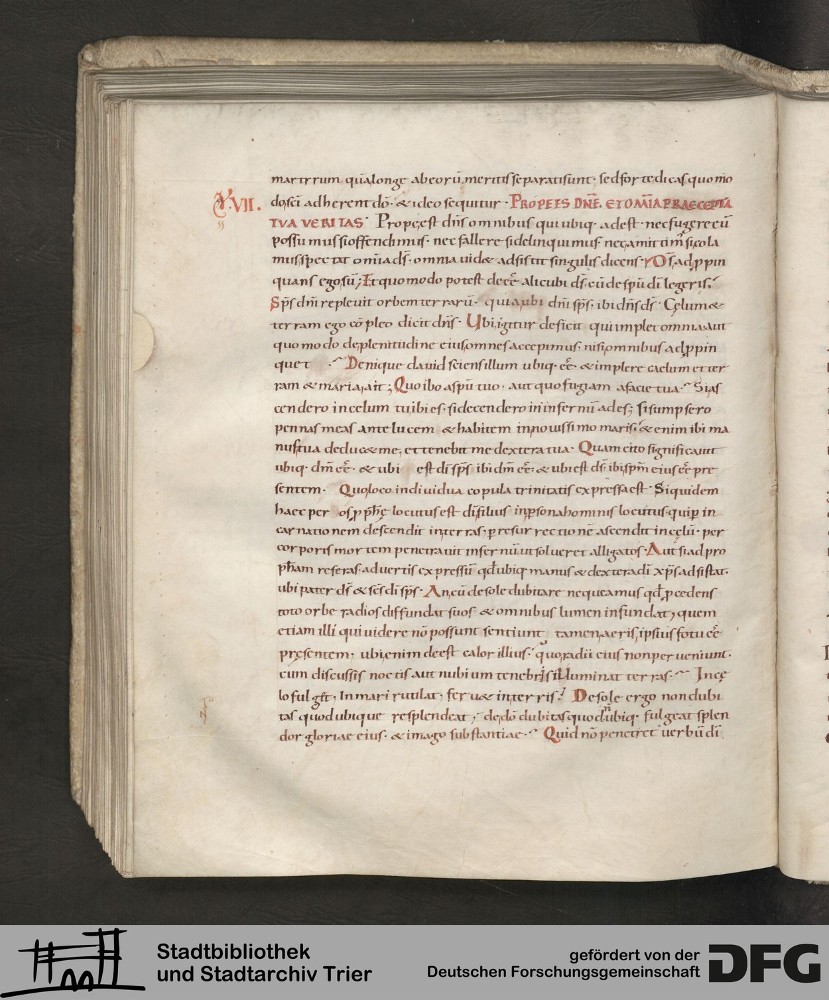 martyrum quā longe ab eorū meritis separati sunt · sed forte dicas quo mo
XVII.
do sc̄i adherent dō · & ideo sequitur · PROPE ES DN̄E · ET OMĪA PRAECEPTA
TVA VERITAS · Prope est dn̄s omnibus qui ubiq · adest · nec fugere eū
possumus si offendimus · nec fallere si delinquimus · nec amittim̄ si cola
mus · spectat om̄ia dс̄ · omnia uid& adsistit singulis dicens · Dс̄ ad ꝓpin
quans ego sū ; Et quomodo potest deeē alicubi dс̄ · cū de spū dī legeris ·
Sps̄ dnī repleuit orbem terrarū · qui aubi dnī sps̄ · ibi dn̄s dс̄ · Cęlum &
terram ego cōpleo dicit dn̄s · Ubi igitur deficit qui implet omnia aut
quo modo de plenitudine eius omnes accepimus · nisi omnibus adꝓpin
quet · Denique dauid sciens illum ubiq · eē · & implere caelum et ter
ram & maria ait ; Quo ibo a spū tuo · aut quo fugiam a facie tua · Si as
cendero in celum tu ibi es · si decendero in infernū ades ; si sumpsero
pennas meas ante lucem & habitem in nouissimo maris · & enim ibi ma
nus tua deduc& me · et tenebit me dextera tua · Quam cito significauit
ubiq · dm̄ eē · & ubi est dī sps̄ ibi dm̄ eē · & ubi est dс̄ ibi spm̄ eius eē pre
sentem · Quo loco indiuidua copula trinitatis expressa est · Siquidem
haec per os ꝓph̄ę locutus est dī filius in ꝑsona hominis locutus · qui ꝑ in
carnationem descendit in terras · ꝑ resurrectionē ascendit in cęlū · per
corporis mortem penetrauit infernū ut solueret alligatos · Aut si ad pro
ph̄am referas · aduertis expressū qđ ubiq · manus & dextera dī xp̄s adsistat ·
ubi pater dс̄ & sc̄s dī sps̄ · An cū de sole dubitare nequeamus qđ ꝓcedens
toto orbe radios diffundat suos & omnibus lumen infundat, quem
etiam illi qui uidere nō possunt sentiunt tamen aeris ipsius fotu eē
pręsentem · ubi enim deest calor illius · quo radii eius non perueniunt ·
cum discussis noctis aut nubium tenebris illuminat terras · In cę
lo fulget · In mari rutilat · feruet in terris · De sole ergo non dubi
tas quod ubique resplendeat ; de dō dubitas quod ubiq · fulgeat splen
dor gloriae eius · & imago substantiae · Quid nō penetret uerbū dī
Stadtbibliothek
und Stadtarchiv Trier
gefördert von der
Deutschen Forschungsgemeinschaft
DFG